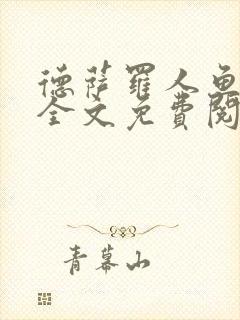 德萨罗人鱼
全文免费阅
青幕山